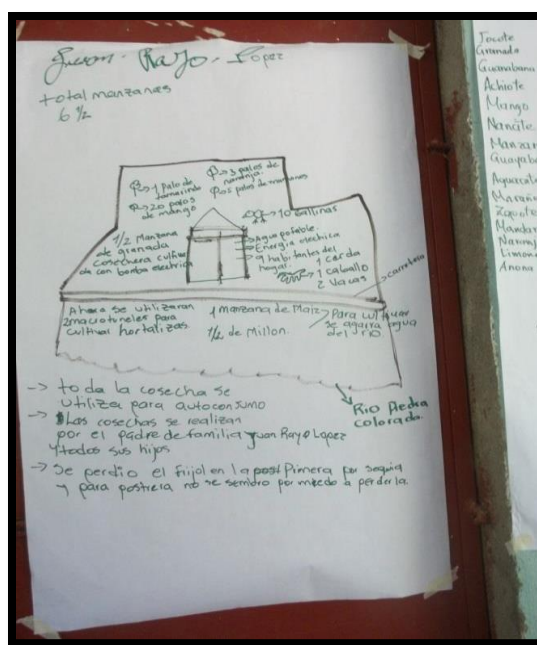 Juan Rayo Lopez
total manzanas
6 1/2
1 palo de tamarindo
20 palos de mango
3 palos de naranja
5 palos de mamones
10 Gallinas
1/2 Manzana
de granada
cosechera cultiva
da con bomba electrica
Agua potable
Energia electrica
9 habitantes del
hogar.
1 cerda
1 caballo
2 Vacas
carretera
Ahora se utilizaran
2 macrotuneles para
cultivar hortalizas.
1 manzana de Maiz
1/2 de Millon.
Para cultivar
se agarra agua
del rio.
Rio Piedra
colorada.
-> toda la cosecha se
utiliza para autoconsumo
-> Las cosechas se realizan
por el padre de familia Juan Rayo Lopez
y todos sus hijos
-> Se perdio el frijol en la post Primera por sequia
y para postrera no se sembro por miedo a perderla.
Jocote
Granada
Guanabana
Achiote
Mango
Nancite
Manzan
Guayaba
Aguacate
Marañon
Zapote
Mandar
Naranja
Limon
Anona